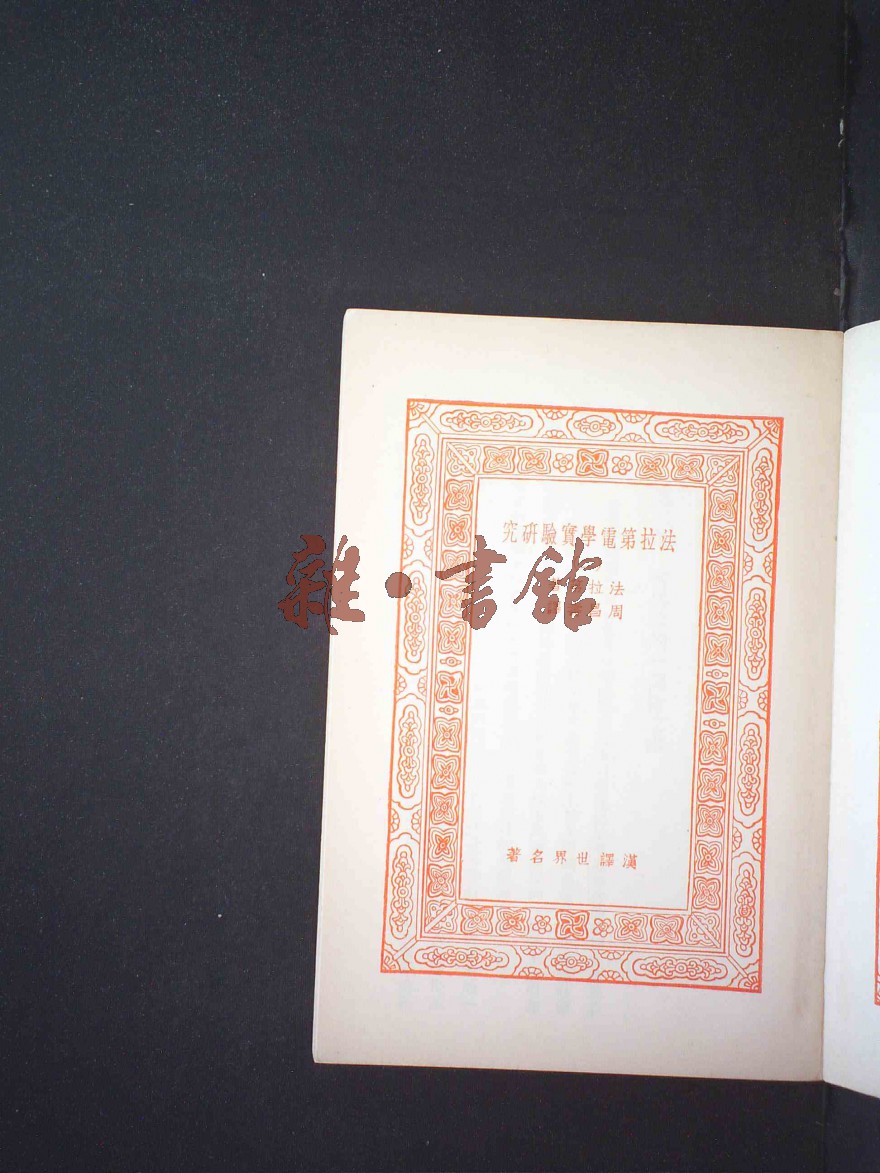 法拉第電學實驗研究
法拉
周昌
漢譯世界名著
雜·書館